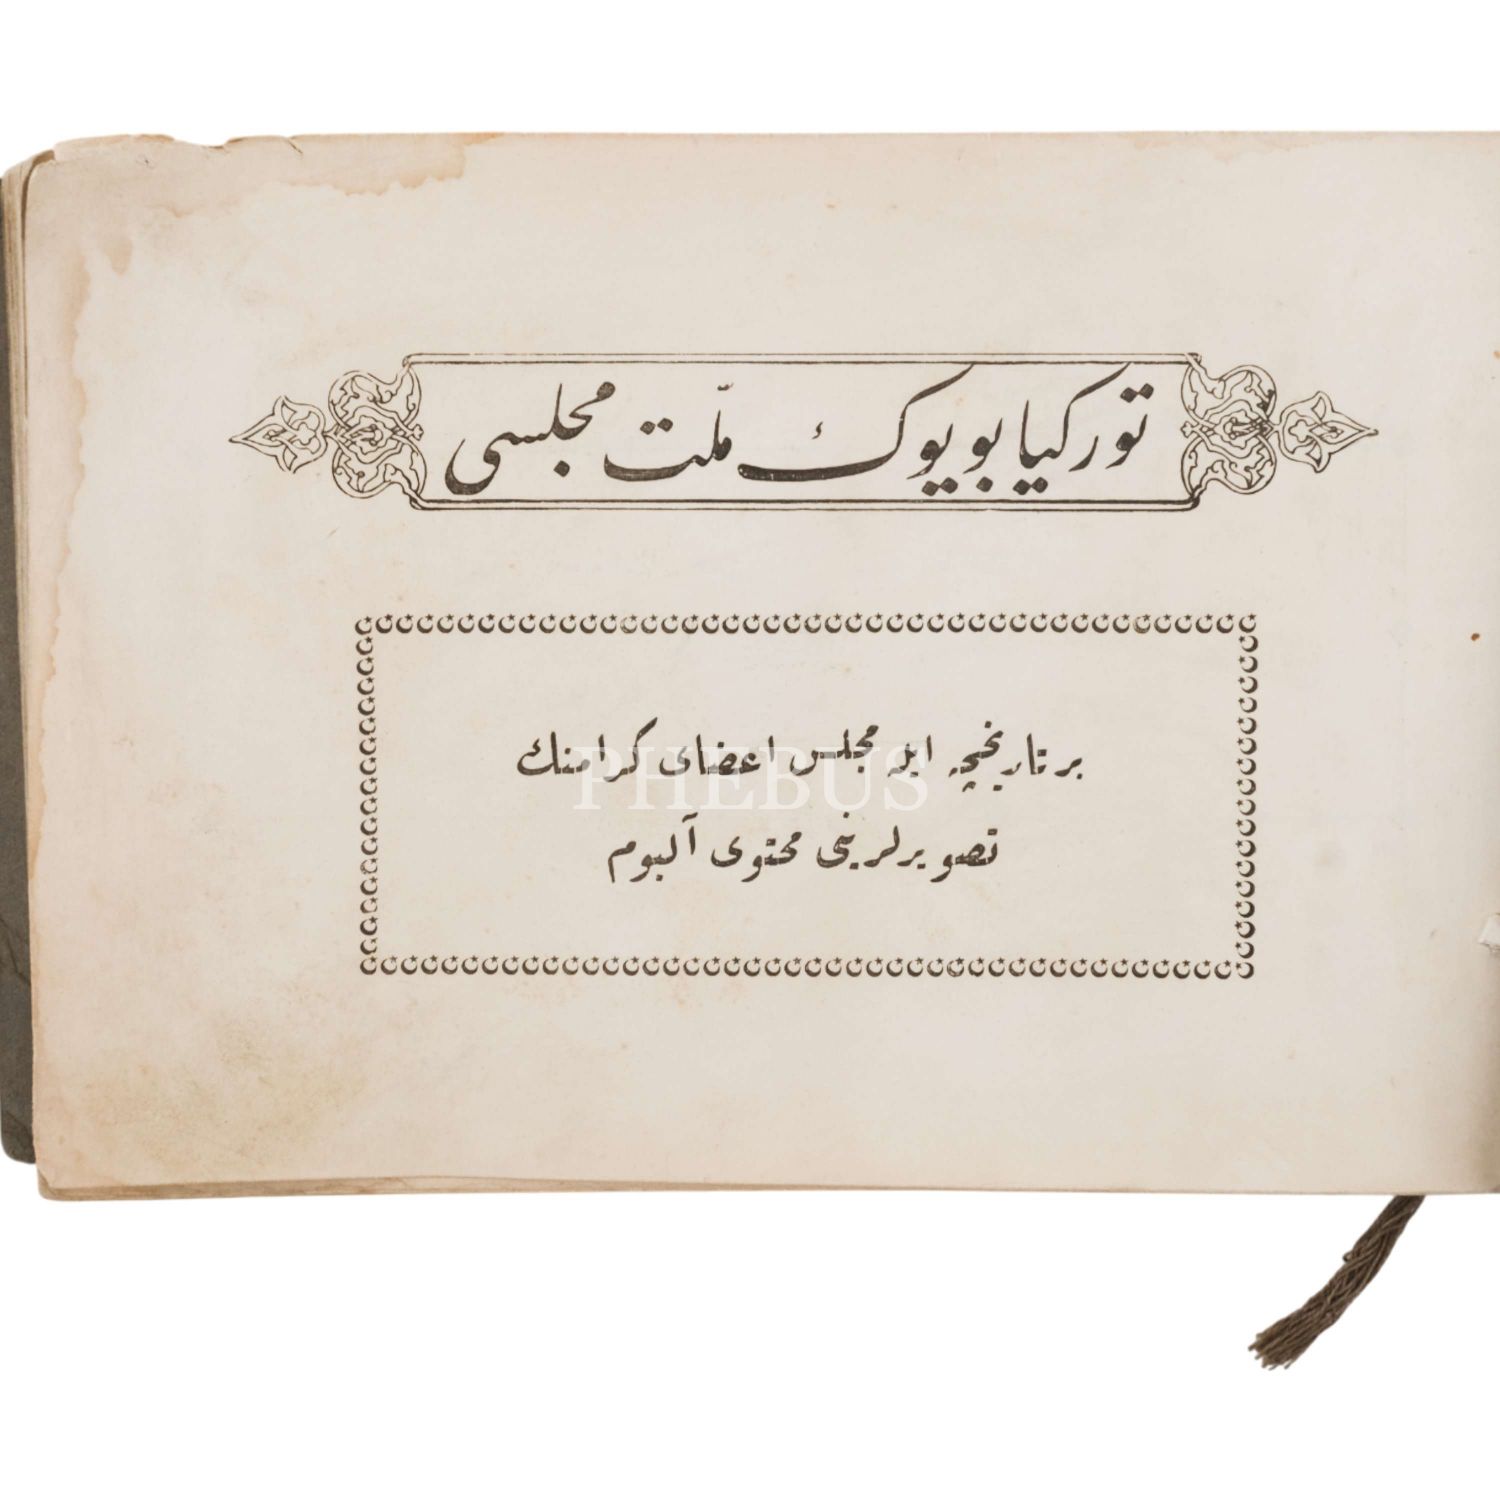 توركيا بويوك ملّت مجلسى
بر تاريخچه ايله مجلس اعضاى كرامنك
تصويرلرينى محتوى آلبوم
PHEBUS